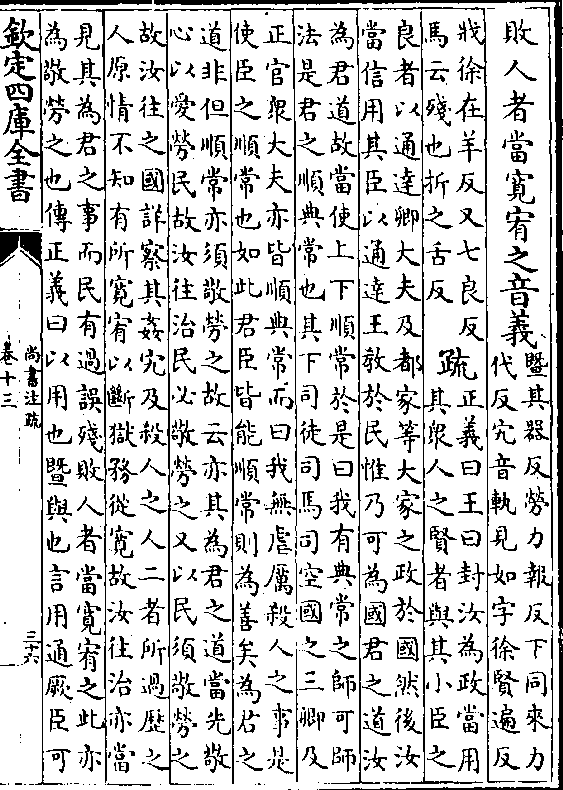 敗人者當寛宥之音義
暨其器反勞力報反下同來力
代反宄音軌見如字徐賢遍反
戕徐在羊反又七良反
馬云殘也折之舌反
疏
正義曰王曰封汝為政當用
其衆人之賢者與其小臣之
良者以通達卿大夫及都家等大家之政於國然後汝
當信用其臣以通達王敎於民惟乃可為國君之道汝
為君道故當使上下順常於是曰我有典常之師可師
法是君之順典常也其下司徒司馬司空國之三卿及
正官衆大夫亦皆順典常而曰我無虐厲殺人之事是
使臣之順常也如此君臣皆能順常則為善矣為君之
道非但順常亦須敬勞之故云亦其為君之道當先敬
心以愛勞民故汝往治民必敬勞之又以民須敬勞之
故汝往之國詳察其姦宄及殺人之人二者所過歷之
人原情不知有所寛宥以斷獄務從寛故汝往治亦當
見其為君之事而民有過誤殘敗人者當寛宥之此亦
為敬勞之也傳正義曰以用也暨與也言用通厥臣可
欽定四庫全書
尚書注疏
卷十三
三十六